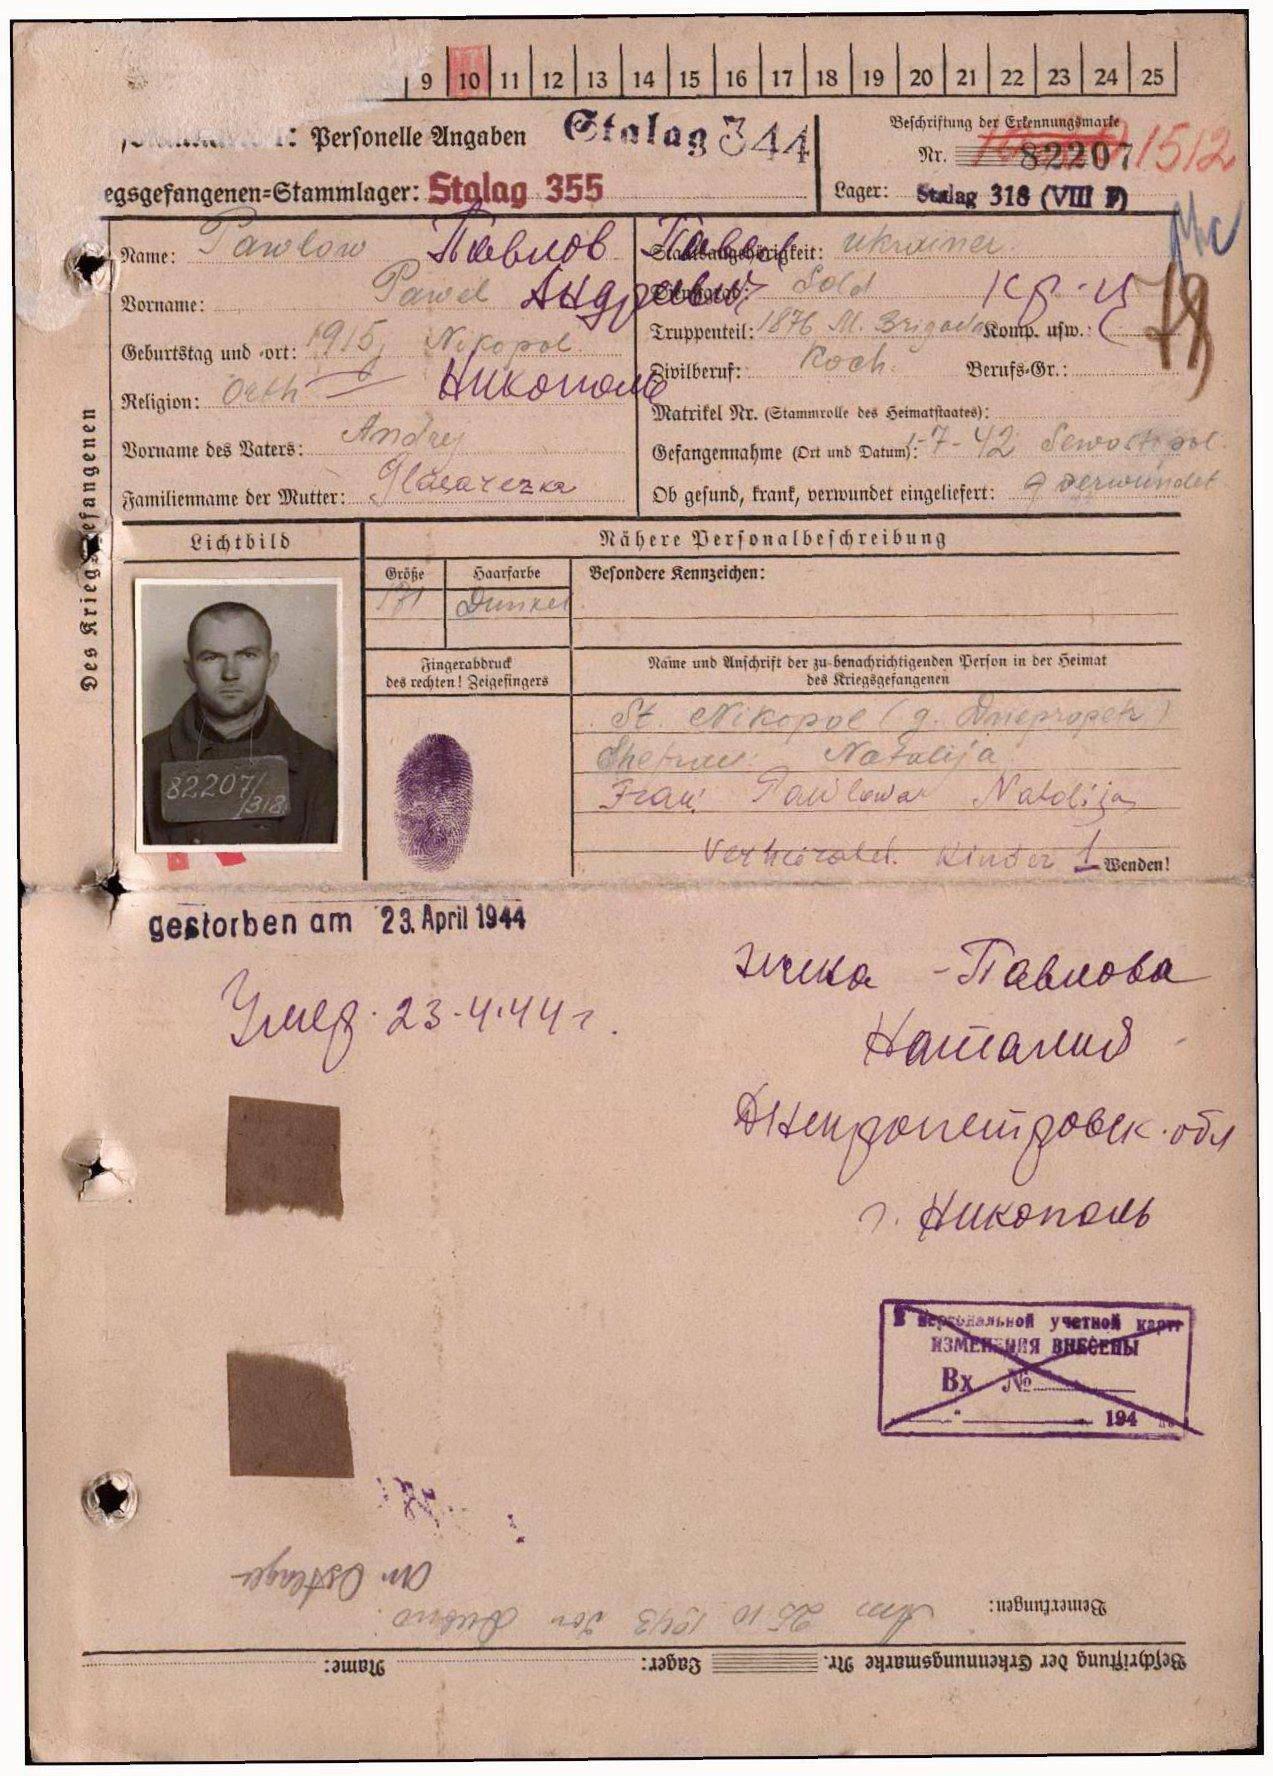 9 10 11 12 13 14 15 16 17 18 19 20 21 22 23 24 25
Personelle Angaben Stalag 344
Beschriftung der Erkennungsmarke
Nr. 82207 1512
egsgefangenen-Stammlager: Stalag 355
Lager: Stalag 318 (VIII F)
Des Kriegsgefangenen
Name: Pawlow Павлов Павел
Staatsangehörigkeit: Ukrainer
Vorname: Pawel Андреевич
Dienstgrad: Sold кр-ц
78
Geburtstag und -ort: 1915 Nikopol
Truppenteil: 1876 M. Brigada Komp. usw.:
Никополь
Religion: Orth
Zivilberuf: Koch Berufs-Gr.:
Matrikel Nr. (Stammrolle des Heimatstaates):
Vorname des Vaters: Andrej
Gefangennahme (Ort und Datum): 1-7-42 Sewostopol
Familienname der Mutter:
Ob gesund, krank, verwundet eingeliefert: verwundet
Lichtbild
Nähere Personalbeschreibung
Größe Haarfarbe Besondere Kennzeichen:
171 Dunkel
Fingerabdruck
des rechten! Zeigefingers
Name und Anschrift der zu benachrichtigenden Person in der Heimat
des Kriegsgefangenen
St. Nikopol (g. Dnepropetr)
Ehefrau: Natalija
Frau: Pawlowa Natolija
Verheiratet. Kinder 1 Wenden!
82207/
/318
gestorben am 23. April 1944
Умер. 23.4.44 г.
жена - Павлова
Наталия
Днепропетровск. обл
г. Никополь
В персональной учетной карте
ИЗМЕНЕНИЯ ВНЕСЕНЫ
Вх №
194
An Ostlager
Bemerkungen: Am 25 10 1943 von Dubno
Beschriftung der Erkennungsmarke Nr. Lager: Name: